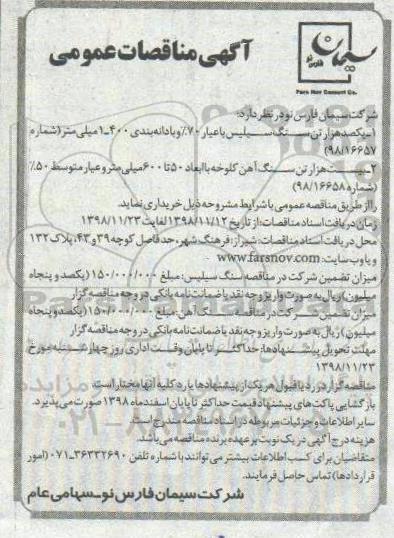 سیمان
فارس نو
Fars Nov Cement Co.
آگهی مناقصات عمومی
شرکت سیمان فارس نو در نظر دارد:
۱-یکصد هزار تن سنگ سیلیس با عیار ۷۰٪ و با دانه‌بندی ۴۰۰-۱ میلی‌متر (شماره
۹۸/۱۶۶۵۷)
۲-بیست هزار تن سنگ آهن کلوخه با ابعاد ۵۰ تا ۶۰۰ میلی‌متر و عیار متوسط ۵۰٪
(شماره ۹۸/۱۶۶۵۸)
را از طریق مناقصه عمومی با شرایط مشروحه ذیل خریداری نماید.
زمان دریافت اسناد مناقصات: از تاریخ ۱۳۹۸/۱۱/۱۲ لغایت ۱۳۹۸/۱۱/۲۳
محل دریافت اسناد مناقصات: شیراز: فرهنگ شهر، حدفاصل کوچه ۳۹ و ۴۳، پلاک ۱۳۲
و یا وب سایت: www.farsnov.com
میزان تضمین شرکت در مناقصه سنگ سیلیس: مبلغ ۱۵۰/۰۰۰/۰۰۰ (یکصد و پنجاه
میلیون) ریال به صورت واریز وجه نقد یا ضمانت نامه بانکی در وجه مناقصه گزار
میزان تضمین شرکت در مناقصه سنگ آهن: مبلغ ۱۵۰/۰۰۰/۰۰۰ (یکصد و پنجاه
میلیون) ریال به صورت واریز وجه نقد یا ضمانت نامه بانکی در وجه مناقصه گزار
مهلت تحویل پیشنهادها: حداکثر تا پایان وقت اداری روز چهارشنبه مورخ
۱۳۹۸/۱۱/۲۳
مناقصه گزار در رد یا قبول هر یک از پیشنهادها یا رد کلیه آنها مختار است.
بازگشایی پاکت‌های پیشنهاد قیمت حداکثر تا پایان اسفندماه ۱۳۹۸ صورت می‌پذیرد.
سایر اطلاعات و جزئیات مربوطه در اسناد مناقصه مندرج است.
هزینه درج آگهی در یک نوبت بر عهده برنده مناقصه می‌باشد.
متقاضیان برای کسب اطلاعات بیشتر می‌توانند با شماره تلفن ۳۶۳۳۲۶۹۰-۰۷۱ (امور
قراردادها) تماس حاصل فرمایند.
شرکت سیمان فارس نو-سهامی عام